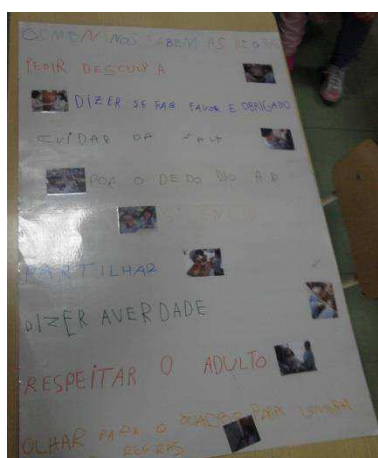 OS MENINOS SABEM AS REGRAS
PEDIR DESCULPA
DIZER SE FAZ FAVOR E OBRIGADO
CUIDAR DA SALA
POR O DEDO NO AR
SILÊNCIO
PARTILHAR
DIZER AVERDADE
RESPEITAR O ADULTO
OLHAR PARA O QUADRO PARA
REGRAS